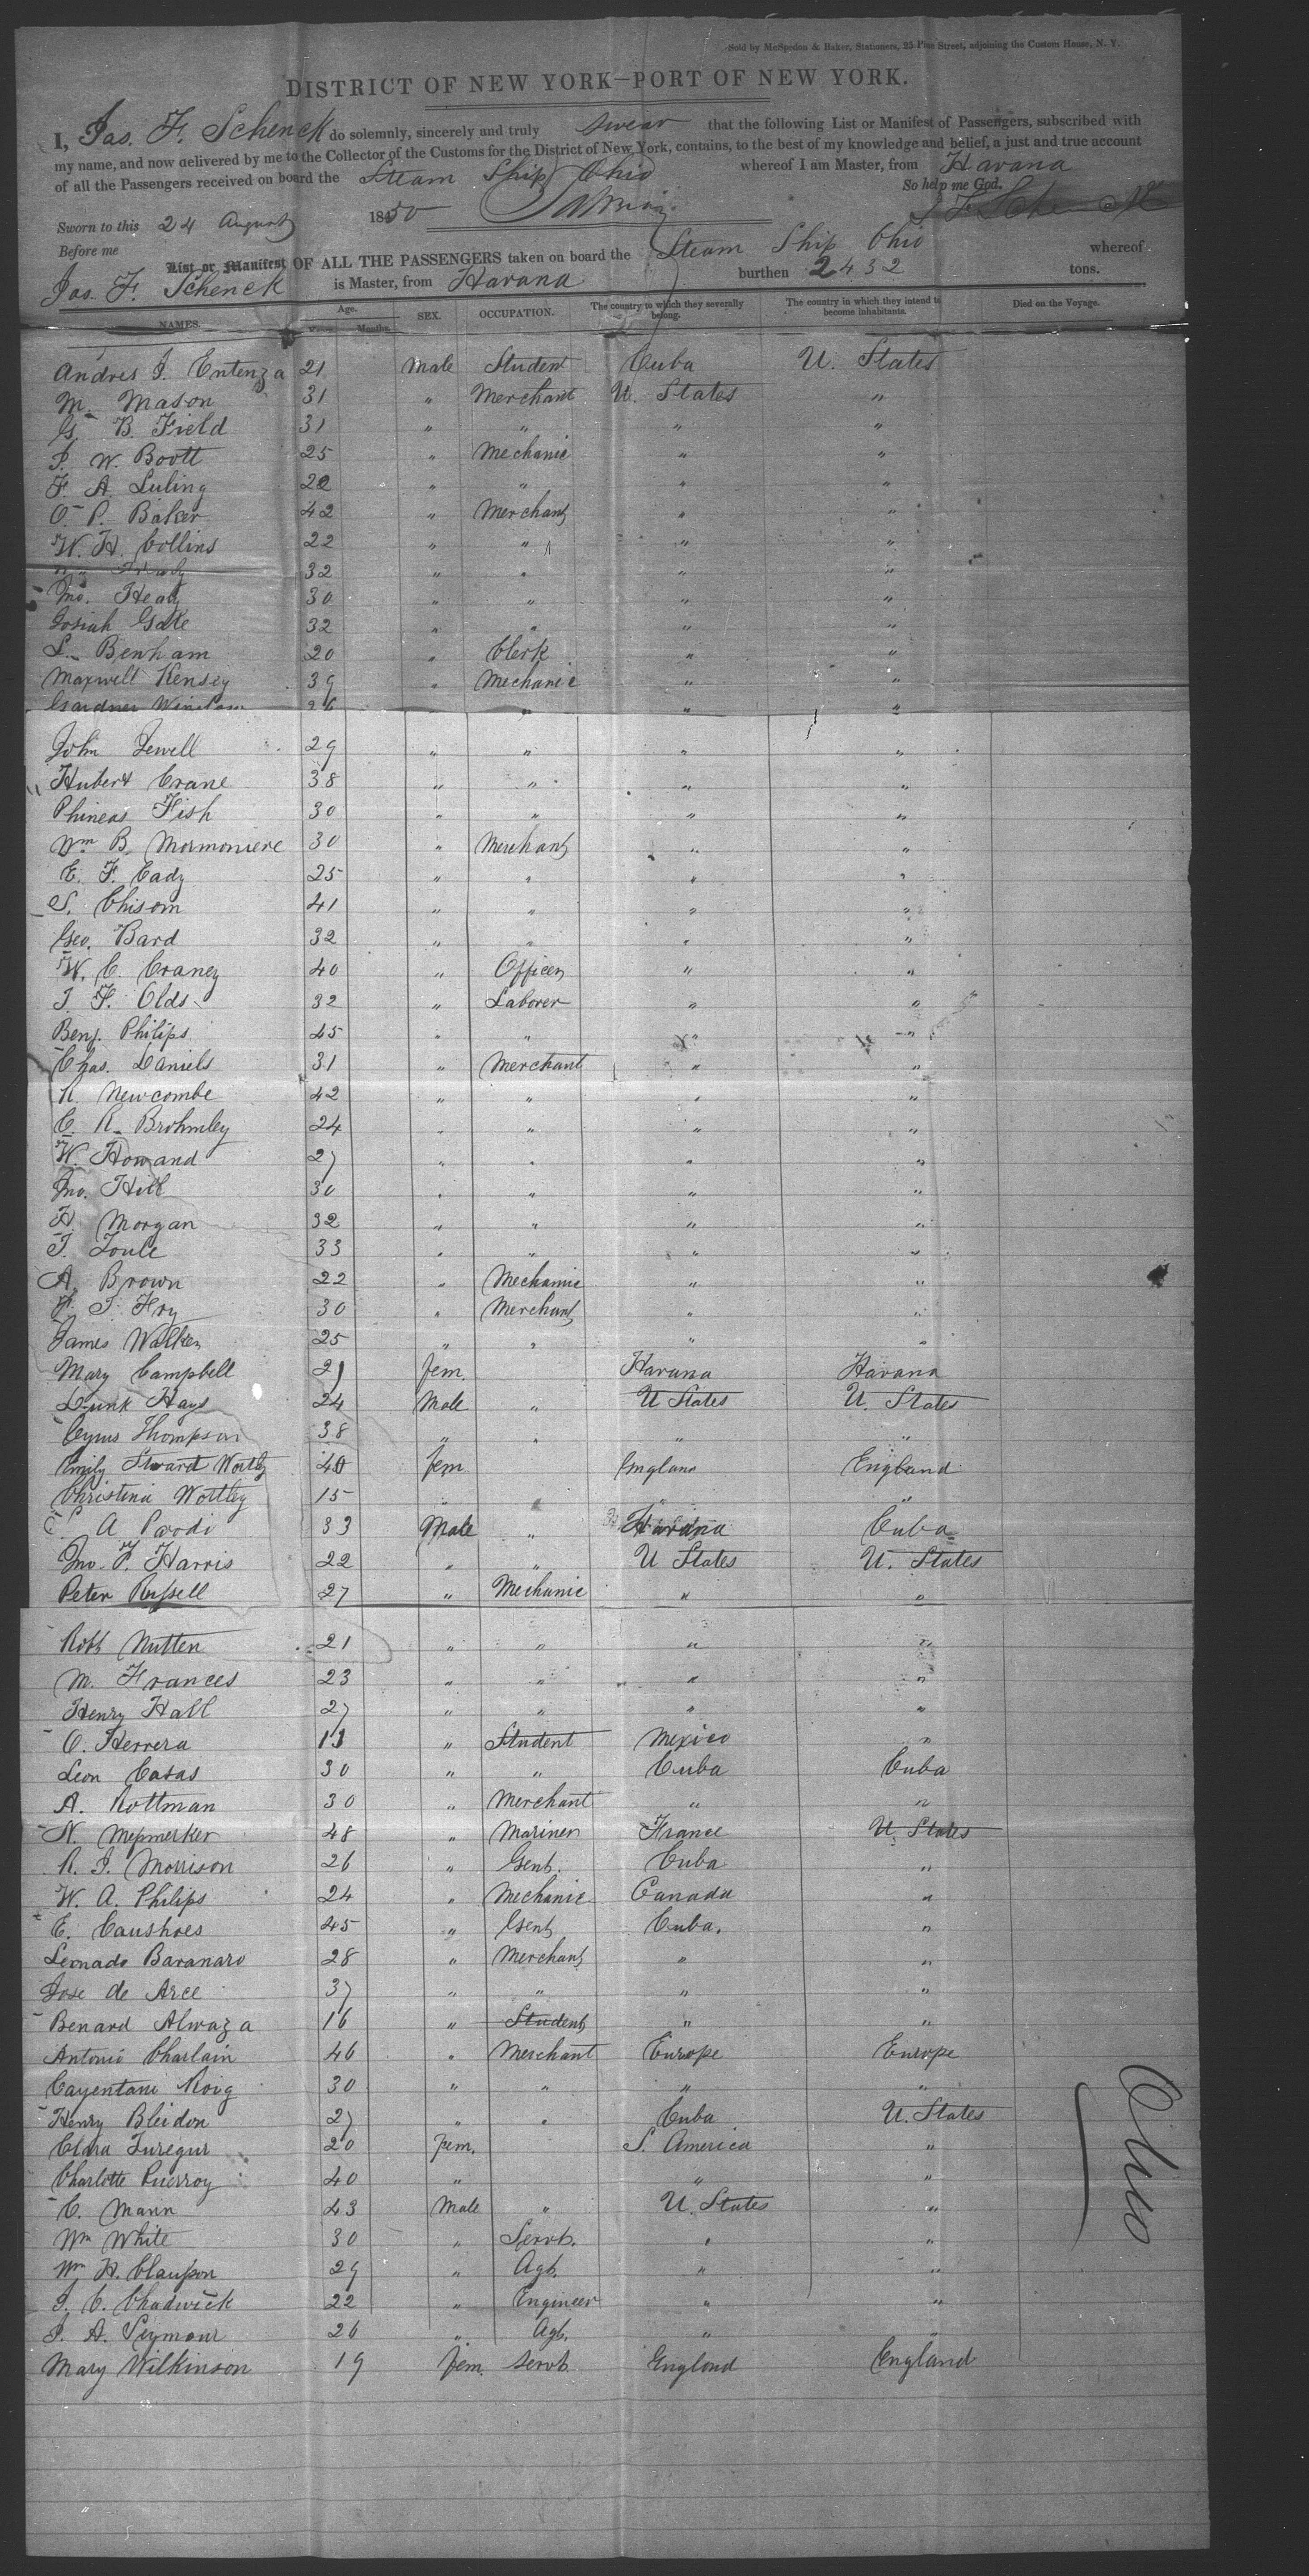 Sold by McSpedon & Baker, Stationers, 25 Pine Street, adjoining the Custom House, N. Y.
DISTRICT OF NEW YORK—PORT OF NEW YORK.
I, Jas. F. Schenck do solemnly, sincerely and truly swear that the following List or Manifest of Passengers, subscribed with
my name, and now delivered by me to the Collector of the Customs for the District of New York, contains, to the best of my knowledge and belief, a just and true account
of all the Passengers received on board the Steam Ship Ohio whereof I am Master, from Havana
So help me God.
Sworn to this 24 August 1850 J F Schenck
Before me
List or Manifest OF ALL THE PASSENGERS taken on board the Steam Ship Ohio whereof
Jas. F. Schenck is Master, from Havana burthen 2432 tons.
NAMES. Age. Years. Months. SEX. OCCUPATION. The country to which they severally belong. The country in which they intend to become inhabitants. Died on the Voyage.
Andres J. Entenza 21 Male Student Cuba U. States
M. Mason 31 " Merchant U. States "
G. B. Field 31 " " " "
J. W. Boott 25 " Mechanic " "
F. A. Luling 22 " " " "
O. P. Baker 42 " Merchant " "
W. H. Collins 22 " " " "
32 " " " "
Jno. Heady 30 " " " "
Josiah Gale 32 " " " "
L. Benham 20 " Clerk " "
Maxwell Kensey 39 " Mechanic " "
Gardner Winslow 26 " " " "
John Jewell 29 " " " "
Hubert Crane 38 " " " "
Phineas Fish 30 " " " "
Wm B. Mormoniere 30 " Merchant " "
E. F. Cady 25 " " " "
S. Chisom 41 " " " "
Geo. Bard 32 " " " "
W. C. Craney 40 " Officer " "
T. F. Olds 32 " Laborer " "
Benj. Philips 45 " " " "
Chas. Daniels 31 " Merchant " "
R. Newcombe 42 " " " "
C. R. Brohmley 24 " " " "
W. Howand 27 " " " "
Jno. Hill 30 " " " "
H. Morgan 32 " " " "
T. Toule 33 " " " "
A. Brown 22 " Mechanic " "
F. T. Fry 30 " Merchant " "
James Walker 25 " " " "
Mary Campbell 21 fem. Havana Havana
Dunk Hays 24 Male " U States U. States
Cyrus Thompson 38 " " " "
Emily Stuart Wortly 40 fem England England
Christina Wortley 15 " " "
A Parodi 33 Male " Havana Cuba
Jno. F. Harris 22 " " U States U. States
Peter Russell 27 " Mechanic " "
Robt Nutten 21 " " " "
M. Frances 23 " " " "
Henry Hall 27 " " " "
O. Herrera 13 " Student Mexico "
Leon Casas 30 " " Cuba Cuba
A. Rottman 30 " Merchant " "
N. Messmerker 48 " Mariner France U. States
R. J. Morrison 26 " Gent. Cuba "
W. A. Philips 24 " Mechanic Canada "
E. Caushoes 45 " Gent Cuba. "
Leonado Baranaro 28 " Merchant " "
Jose de Arce 37 " " " "
Benard Alwaza 16 " Student " "
Antonio Charlain 46 " Merchant Europe Europe
Cayentani Roig 30 " " " "
Henry Bleidon 27 " " Cuba U. States
Clara Turegur 20 fem. S. America "
Charlotte Puerroy 40 " " "
C. Mann 43 Male " U. States "
Wm White 30 " Servt. " "
Wm H. Clausson 29 " Agt. " "
J. C. Chadwick 22 " Engineer " "
J. A. Seymour 26 " Agt. " "
Mary Wilkinson 19 fem. Servt England England
Ohio